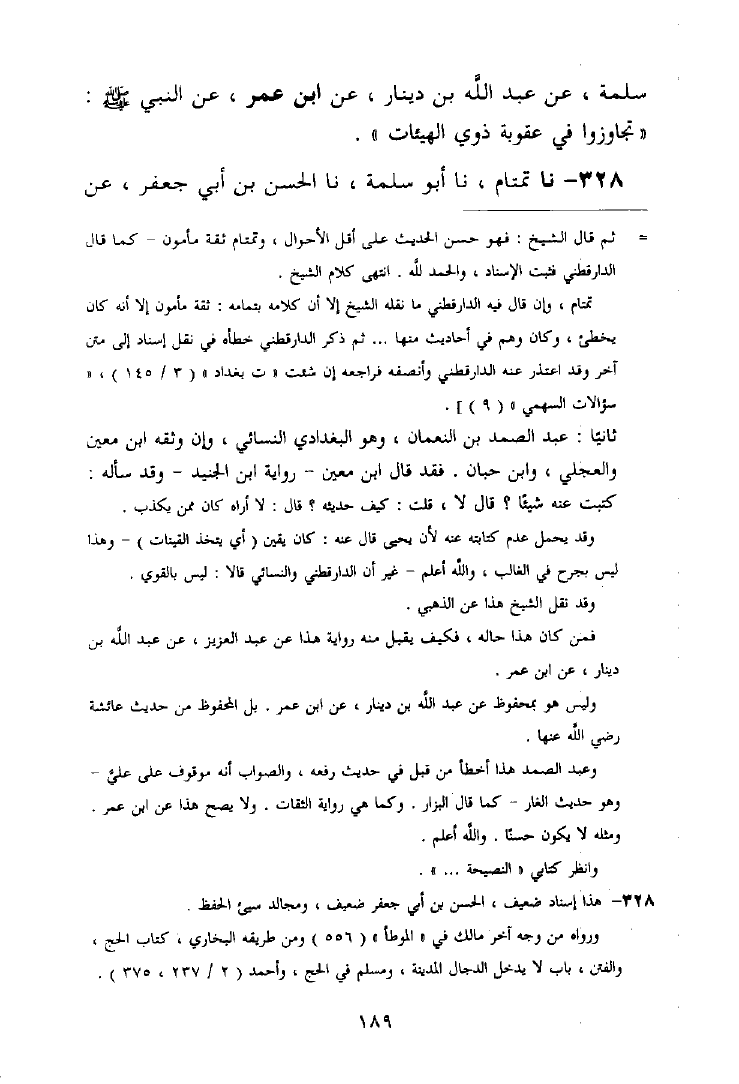 سلمة ، عن عبد اللَّه بن دينار ، عن ابن عمر ، عن النبي ﷺ :
« تجاوزوا في عقوبة ذوي الهيئات » .
٣٢٨- نا تمتام ، نا أبو سلمة ، نا الحسن بن أبي جعفر ، عن
= ثم قال الشيخ : فهو حسن الحديث على أقل الأحوال ، وتمتام ثقة مأمون – كما قال
الدارقطني فثبت الإسناد ، والحمد للَّه . انتهى كلام الشيخ .
تمتام ، وإن قال فيه الدارقطني ما نقله الشيخ إلا أن كلامه بتمامه : ثقة مأمون إلا أنه كان
يخطئ ، وكان وهم في أحاديث منها ... ثم ذكر الدارقطني خطأه في نقل إسناد إلى متن
آخر وقد اعتذر عنه الدارقطني وأنصفه فراجعه إن شئت « ت بغداد » ( ٣ / ١٤٥ ) ، «
سؤالات السهمي » ( ٩ ) ] .
ثانيًا : عبد الصمد بن النعمان ، وهو البغدادي النسائي ، وإن وثقه ابن معين
والعجلي ، وابن حبان . فقد قال ابن معين – رواية ابن الجنيد – وقد سأله :
كتبت عنه شيئًا ؟ قال لا ، قلت : كيف حديثه ؟ قال : لا أراه كان ممن يكذب .
وقد يحمل عدم كتابته عنه لأن يحيى قال عنه : كان يقين ( أي يتخذ القينات ) – وهذا
ليس بجرح في الغالب ، واللَّه أعلم – غير أن الدارقطني والنسائي قالا : ليس بالقوي .
وقد نقل الشيخ هذا عن الذهبي .
فمن كان هذا حاله ، فكيف يقبل منه رواية هذا عن عبد العزيز ، عن عبد اللَّه بن
دينار ، عن ابن عمر .
وليس هو بمحفوظ عن عبد اللَّه بن دينار ، عن ابن عمر . بل المحفوظ من حديث عائشة
رضي اللَّه عنها .
وعبد الصمد هذا أخطأ من قبل في حديث رفعه ، والصواب أنه موقوف على عليّ –
وهو حديث الغار – كما قال البزار . وكما هي رواية الثقات . ولا يصح هذا عن ابن عمر .
ومثله لا يكون حسنًا . واللَّه أعلم .
وانظر كتابي « النصيحة ... » .
٣٢٨- هذا إسناد ضعيف ، الحسن بن أبي جعفر ضعيف ، ومجالد سيئ الحفظ .
ورواه من وجه آخر مالك في « الموطأ » ( ٥٥٦ ) ومن طريقه البخاري ، كتاب الحج ،
والفتن ، باب لا يدخل الدجال المدينة ، ومسلم في الحج ، وأحمد ( ٢ / ٢٣٧ ، ٣٧٥ ) .
١٨٩